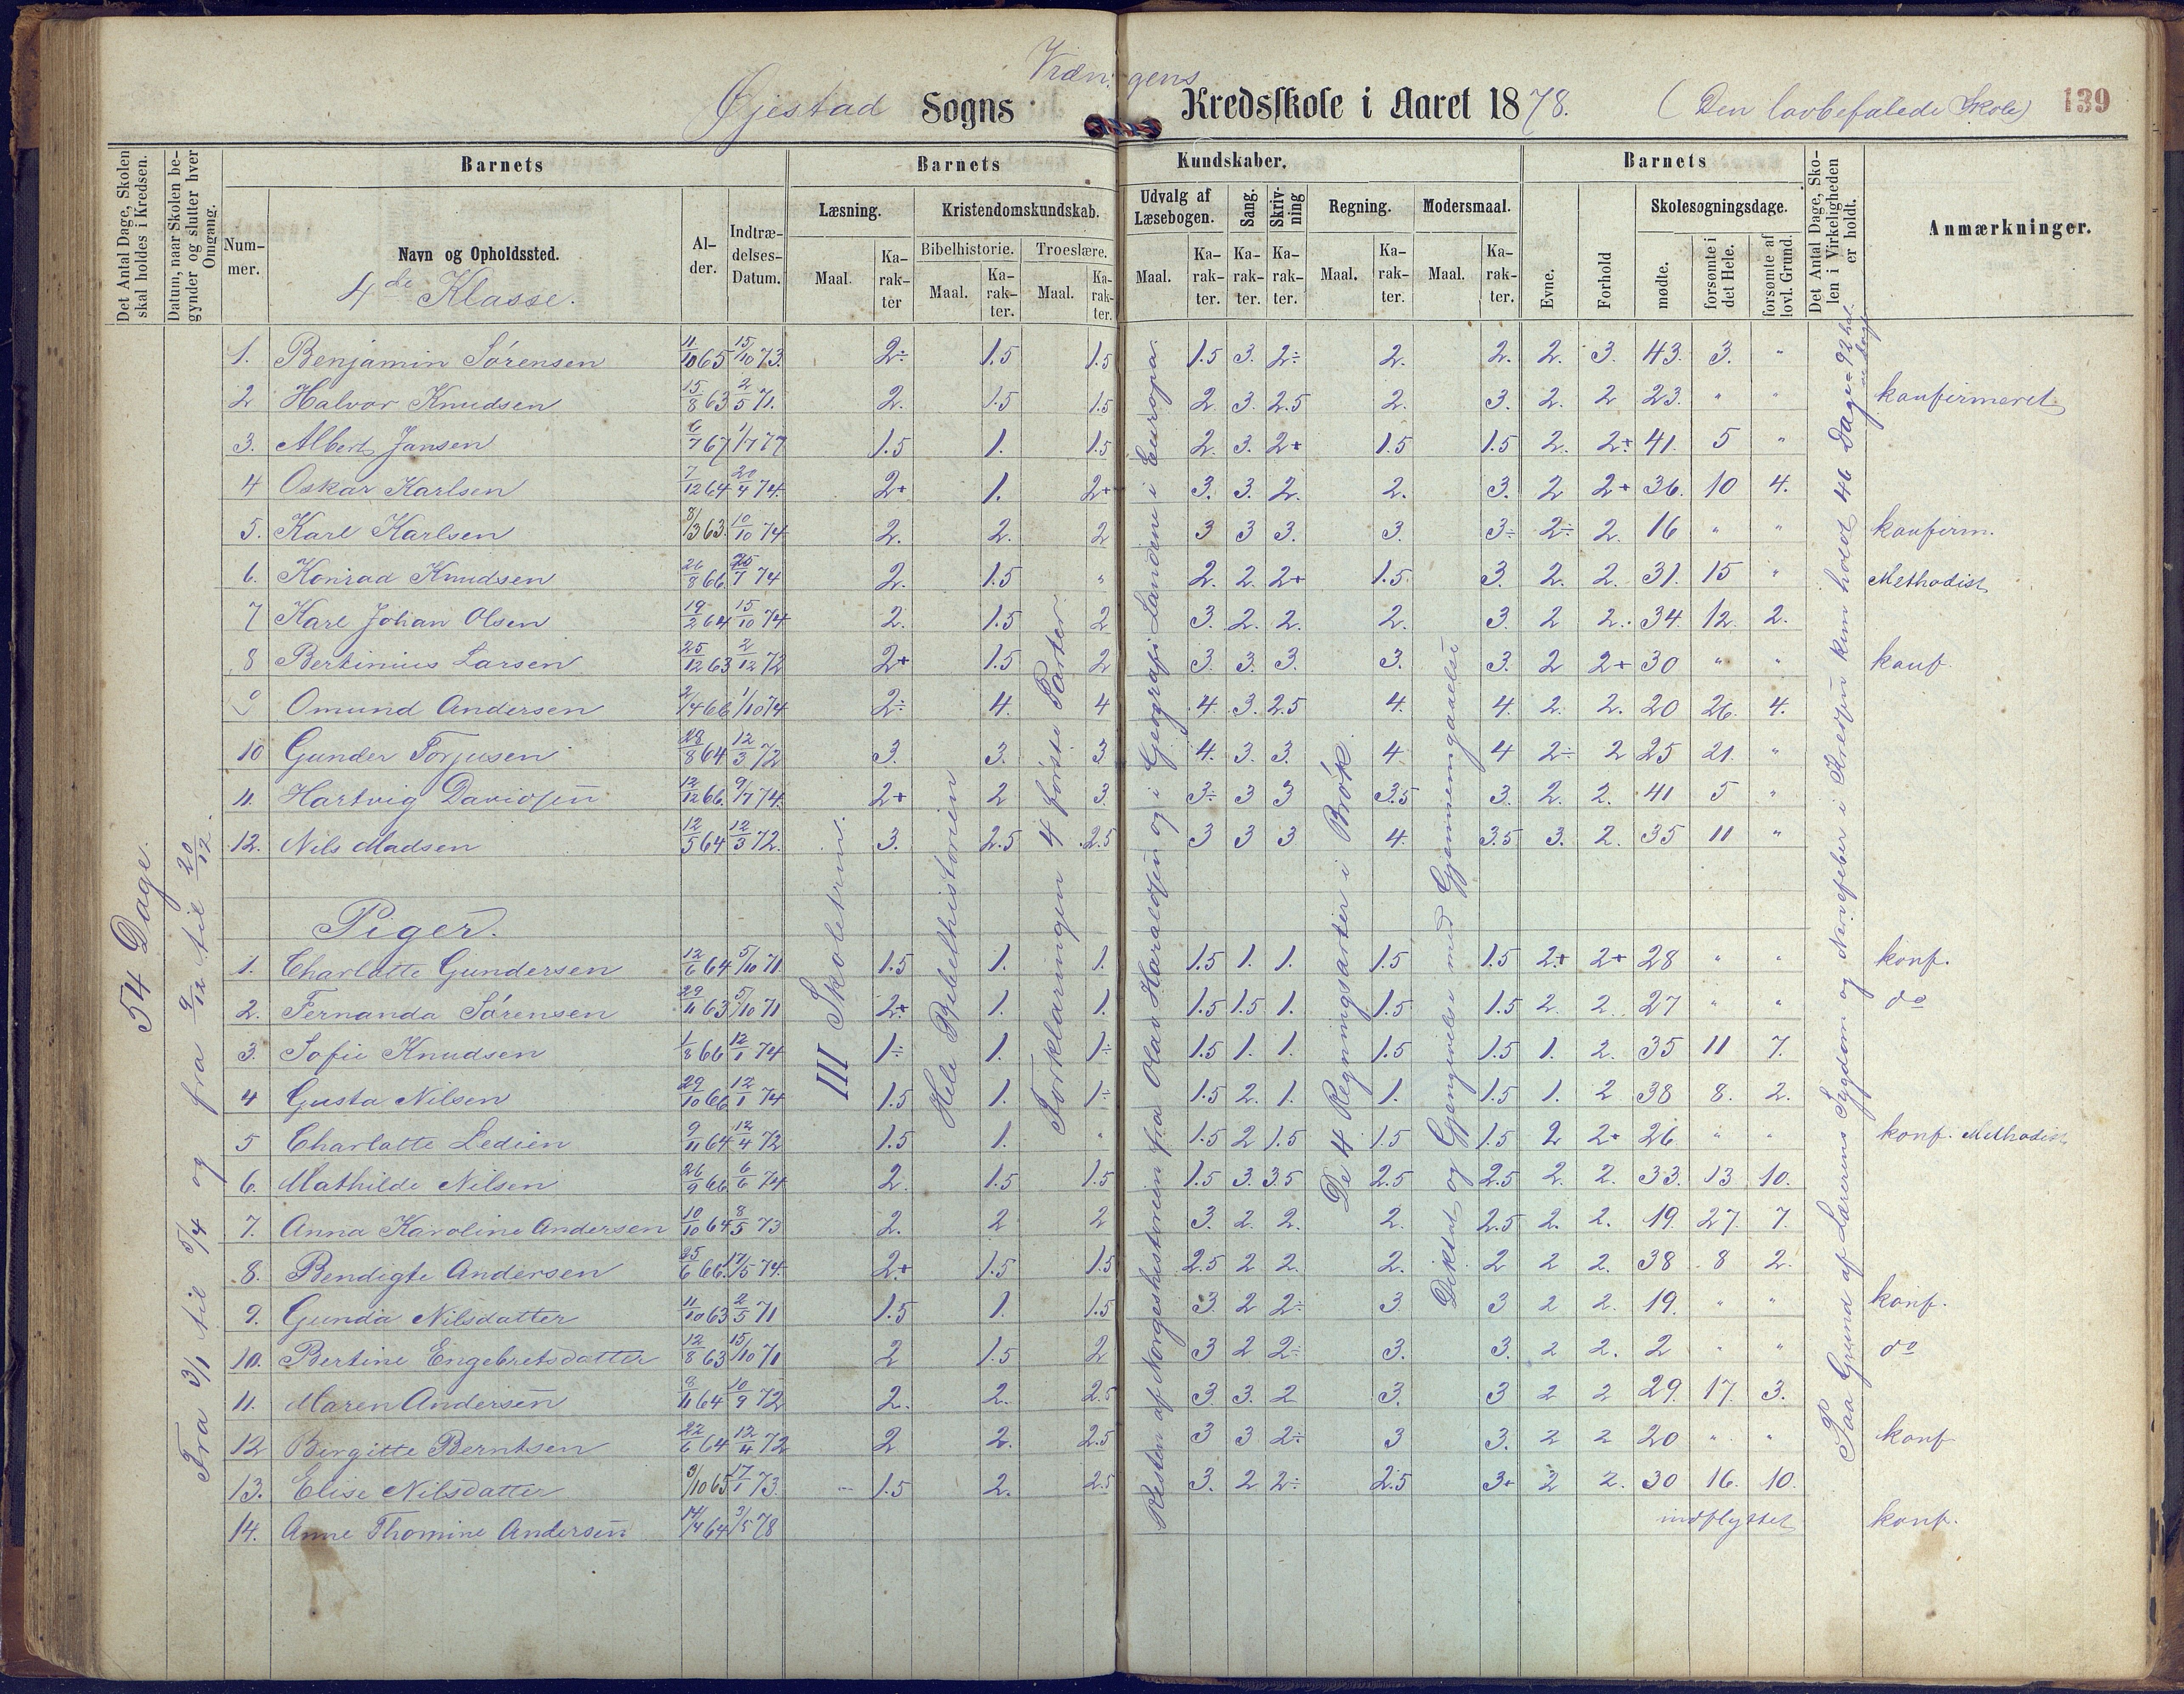 Vrængens
Øjestad Sogns Kredsskole i Aaret 1878. (Den lovbefalede Skole) 139
Det Antal Dage, Skolen skal holdes i Kredsen.
Datum, naar Skolen begynder og slutter hver Omgang.
Barnets
Nummer.
Navn og Opholdssted.
4de Klasse.
Alder.
Indtrædelses-Datum.
Barnets Kundskaber.
Læsning.
Maal. Karakter
Kristendomskundskab.
Bibelhistorie. Troeslære.
Maal. Karakter. Maal. Karakter.
Udvalg af Læsebogen.
Maal. Karakter.
Sang. Karakter.
Skrivning Karakter.
Regning. Maal. Karakter.
Modersmaal. Maal. Karakter.
Barnets
Evne. Forhold
Skolesøgningsdage.
mødte. forsømte i det Hele. forsømte af lovl. Grund.
Det Antal Dage, Skolen i Virkeligheden er holdt.
Anmærkninger.
54 Dage.
Fra 3/1 til 5/4 og fra 9/12 til 20/12.
III Skoletrin.
Hele Bibelhistorien
Forklaringen 4 første Parter
Resten af Norgeshistorien fra Olav Haraldsen og i Geografi Landene i Europa.
De 4 Regningsarter i Brøk
Diktat og Gjengivelse med Gjennemgaaelse
Paa Grund af Lærerens Sygdom og Nervefeber i Kredsen kun holdt 46 Dage = 92 hal-
1. Benjamin Sørensen 11/10 65 15/10 73. 2÷ 1.5 1.5 1.5 3. 2÷ 2. 2. 2. 3. 43. 3. "
2 Halvor Knudsen 15/8 63 2/5 71. 2. 1.5 1.5 2. 3. 2.5 2. 3. 2. 2 23. " " konfirmeret
3. Albert Jansen 6/7 67 1/7 77 1.5 1. 1.5 2. 3. 2+ 1.5 1.5 2. 2÷ 41. 5 "
4 Oskar Karlsen 7/12 64 20/4 74. 2+ 1. 2+ 3. 3. 2. 2. 3. 2 2+ 36. 10 4.
5. Karl Karlsen 8/3 63. 10/10 74 2. 2. 2 3 3 3. 3. 3÷ 2÷ 2. 16 " " konfirm.
6. Konrad Knudsen 26/8 66 25/7 74 2. 1.5 " 2. 2. 2+ 1.5. 3. 2. 2. 31. 15 " Methodist
7 Karl Johan Olsen 19/2 64 15/10 74 2. 1.5 2 3. 2. 2. 2. 3. 2 2. 34 12. 2.
8 Bertinius Larsen 25/12 63 2/12 72 2+ 1.5 2 3. 3. 3. 3. 3. 2 2+ 30 " " konf.
9 Omund Andersen 2/4 66 1/10 74 2÷ 4. 4 4. 3. 2.5 4. 4. 2. 2. 20 26. 4.
10 Gunder Torjusen 23/8 64 12/3 72 3. 3. 3 4. 3. 3. 4 4 2÷ 2 25 21. "
11. Hartvig Davidsen 12/12 66. 9/7 74. 2+ 2 3. 3÷ 3 3 3.5 3. 2. 2. 41 5 "
12. Nils Madsen 12/5 64 12/3 72. 3. 2.5 2.5 3 3 3 4. 3.5 3. 2. 35 11 "
Piger.
1. Charlotte Gundersen 12/6 64 5/10 71 1.5 1. 1. 1.5 1. 1. 1.5 1.5 2+ 2+ 28 " " konf.
2. Fernanda Sørensen 29/11 63 5/10 71 2+ 1. 1. 1.5 1.5 1. 1.5 1.5 2. 2. 27 " " do
3. Sofie Knudsen 1/8 66 12/1 74 1÷ 1. 1÷ 1.5 1. 1. 1.5 1.5 1. 2. 35 11 7.
4 Gusta Nilsen 29/10 66 12/1 74 1.5 1. 1÷ 1.5 2. 1. 1. 1.5 1. 2 38 8. 2.
5 Charlotte Ledien 9/11 64 12/4 72 1.5 1. " 1.5 2 1.5 1.5 1.5 2 2+ 26 " " konf. Methodist
6. Mathilde Nilsen 26/9 66 6/6 74 2. 1.5 1.5 1.5 3. 3.5 2.5 2.5 2. 2. 33. 13 10.
7. Anna Karoline Andersen 10/10 64 8/5 73 2. 2 2 3. 2. 2. 2. 2.5 2. 2. 19. 27. 7.
8. Bendigte Andersen 25/6 66. 17/5 74. 2+ 1.5 1.5 2.5 2 2. 2. 2 2 2. 38 8 2.
9. Gunda Nilsdatter 11/10 63 2/5 71 1.5 1. 1.5 3. 2 2÷ 3 3 2 2. 19. " " konf.
10. Bertine Engebretsdatter 12/8 63 15/10 71 2 1.5 2 3 2 2÷ 3. 3. 2 2. 2 " " do
11. Maren Andersen 8/11 64 10/9 72 2. 2. 2.5 3 3. 2 3. 3 2 2 29. 17. 3.
12 Birgitte Berntsen 22/6 64 12/4 72 2 2. 2.5 3 3 2÷ 3 3. 2 2 20 " " konf
13. Elise Nilsdatter 9/10 65 17/1 73. 1.5 2. 2.5 3. 2 2÷ 2.5 3+ 2 2. 30 16. 10.
14. Anne Thomine Andersen 14/4 64 3/5 78 indflyttet konf.